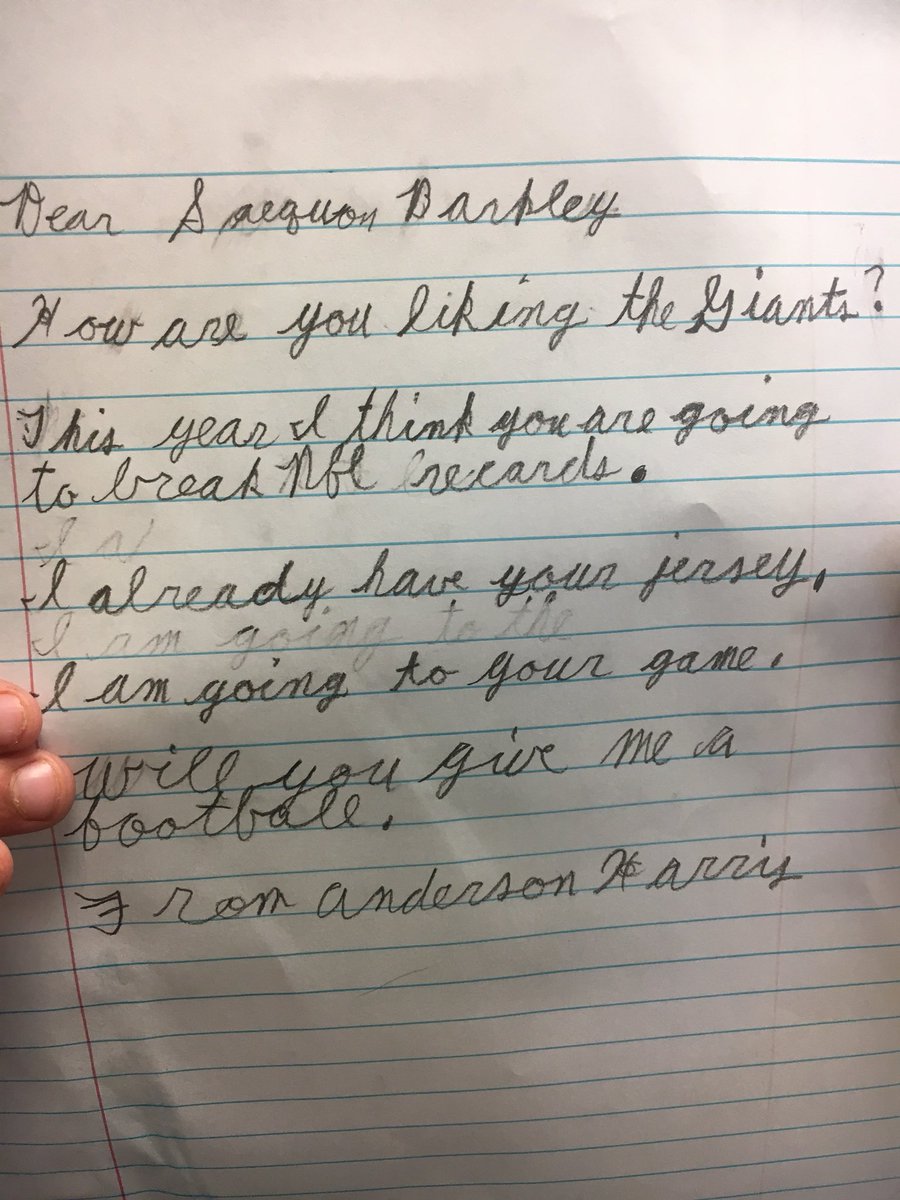 Dear Saequon Barkley
How are you liking the Giants?
This year I think you are going
to break Nfl records.
I already have your jersey.
I am going to the
I am going to your game.
will you give me a
football.
From anderson Harris